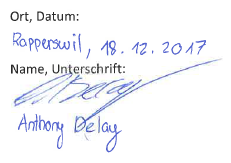 Ort, Datum:
Rapperswil, 18.12.2017
Name, Unterschrift:
Anthony Delay